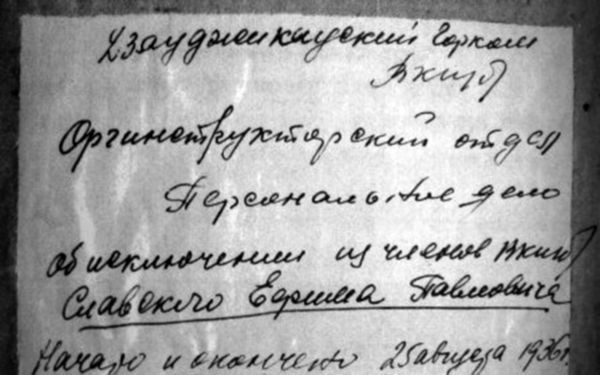 Дзауджикауский Горком
ВКП(б)
Оргинструкторский отдел
Персональное дело
об исключении из членов ВКП(б)
Славского Ефима Павловича
Начато и окончено 25 августа 1936 г.